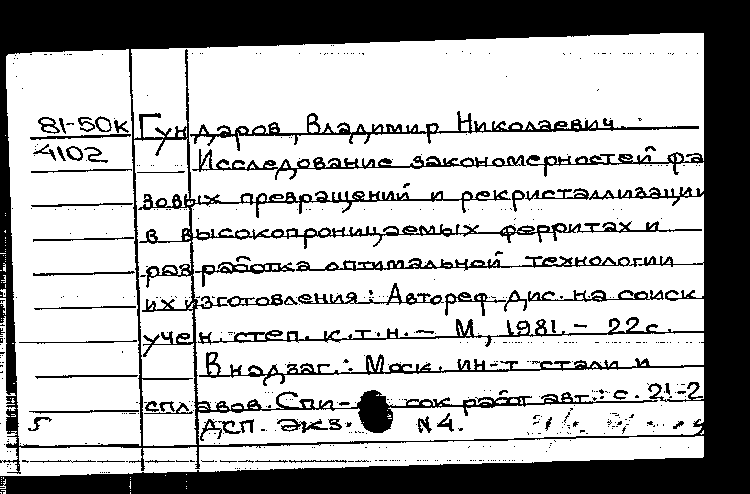 81-50к Гундаров, Владимир Николаевич.
4102 Исследование закономерностей фа
зовых превращений и рекристаллизации
в высокопроницаемых ферритах и
разработка оптимальной технологии
их изготовления: Автореф. дис. на соиск.
учен. степ. к.т.н. - М., 1981. - 22с.
В надзаг.: Моск. ин-т стали и
сплавов. Спи- сок работ авт.: с. 21-2
5 Дсп. экз. N4.